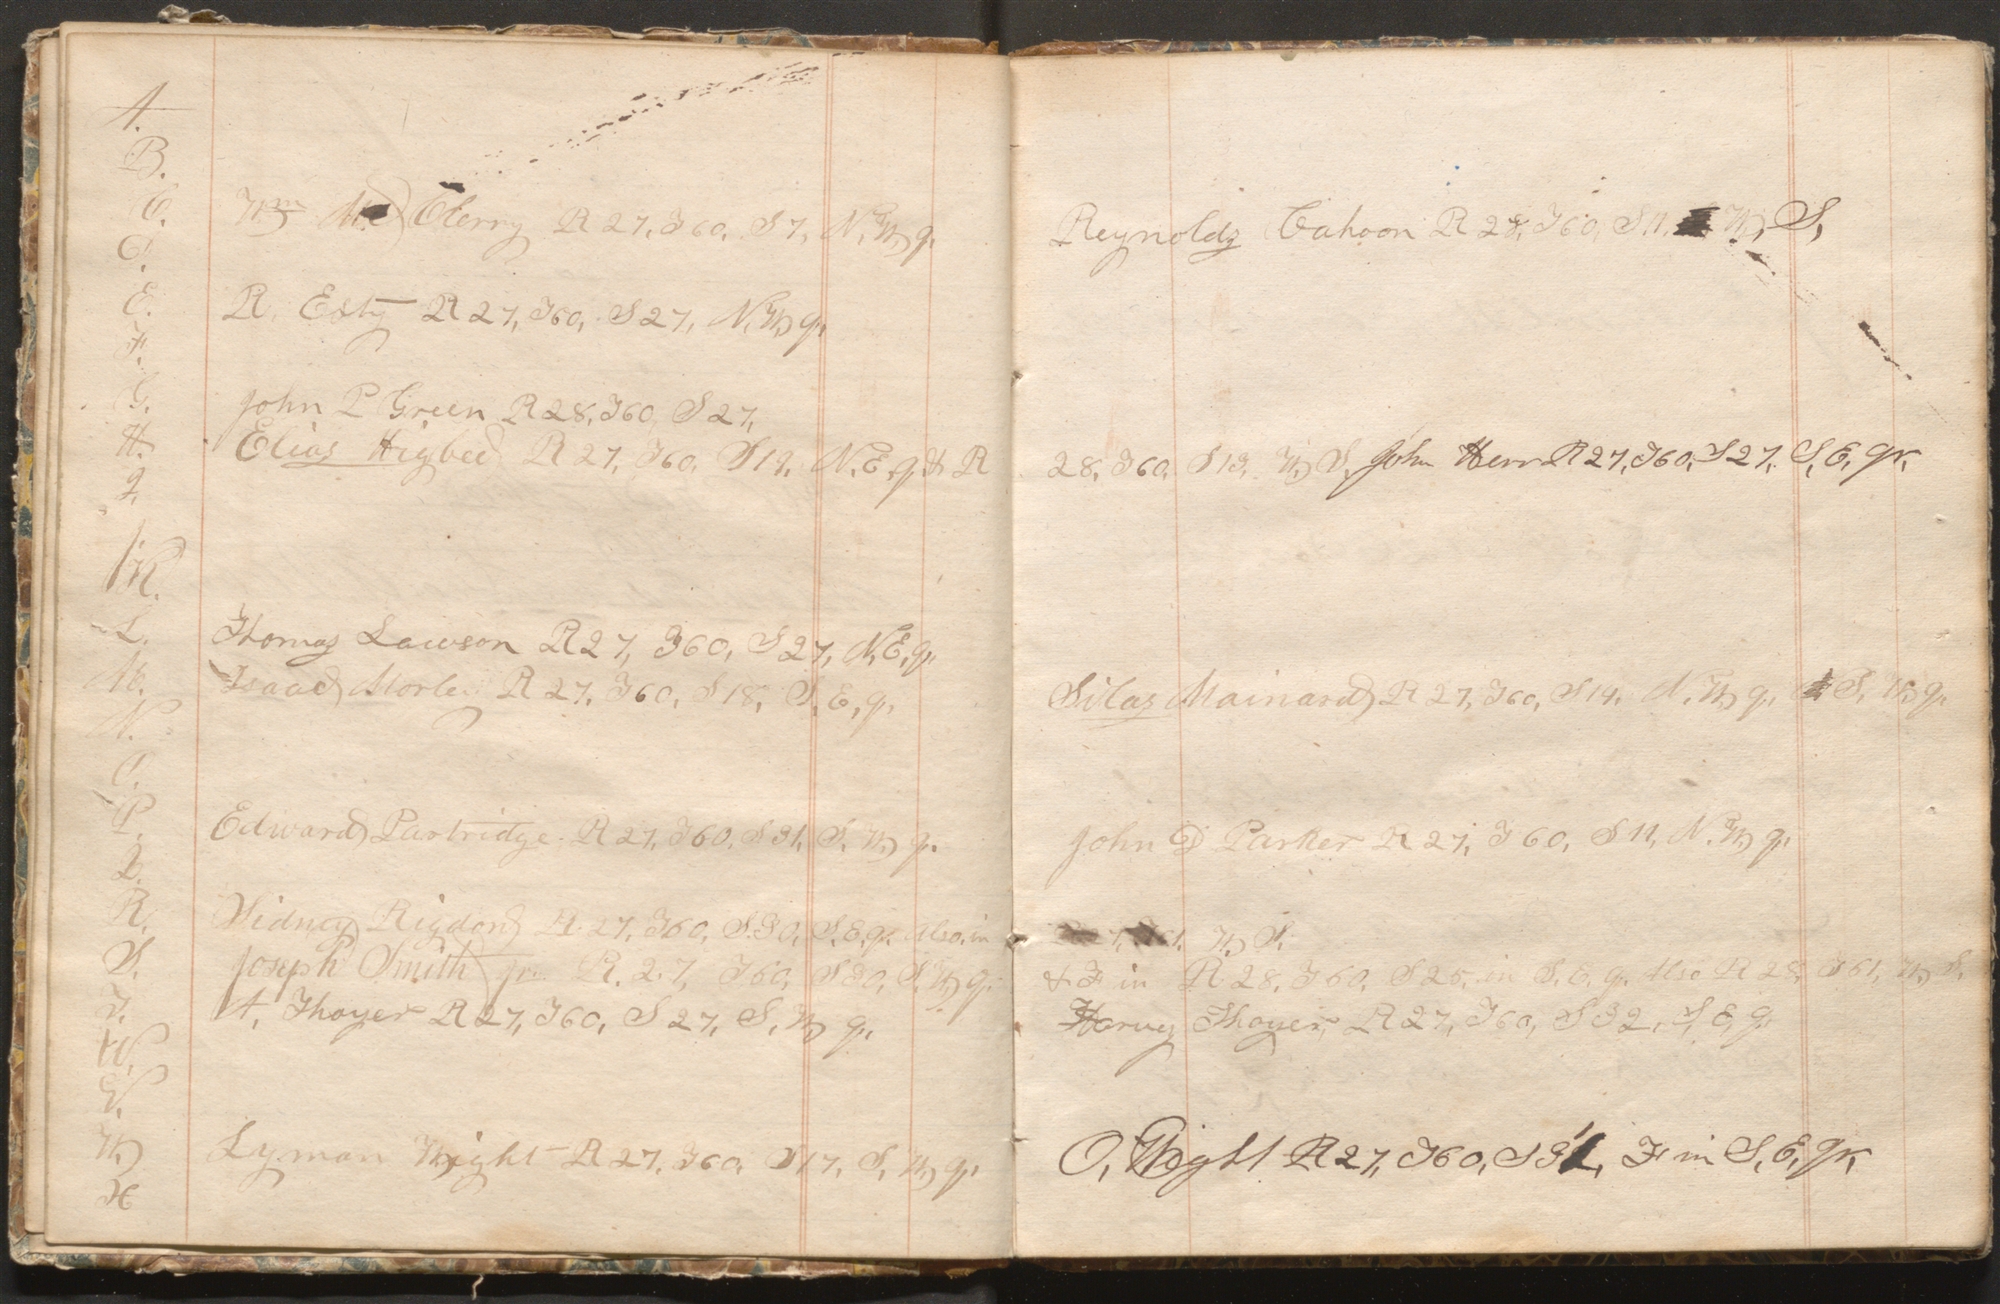 A.
B.
C. Wm Mc Clerry R 27, T60, S7, N, W, q,
D.
E. R. Esty R 27, T60, S 27, N, W, q,
F.
G. John P Green R 28, T60, S 27,
H. Elias Higbee R 27, T60, S 19, N. E, q, & R
I.
J.
K.
L. Thomas Lawson R 27, T60, S 27, N, E, q,
M. Isaac Morley R 27, T60, S 18, S, E, q,
N.
O.
P. Edward Partridge R 27, T60, S 31, S, W, q,
Q.
R. Sidney Rigdon R 27, T60, S 30, S. E, q. also in
S. Joseph Smith jr. R. 27, T60, S 30, S, W, q,
T. A. Thayer R 27, T60, S 27, S, W, q,
U.
V.
W. Lyman Wight R 27, T60, S 17, S, W, q,
X
Reynolds Cahoon R 28, T60, S 11, W, S,
28, T60, S 13, W, S, John Herr R 27, T60, S 27, S, E, qr,
Silas Mainard R 27, T60, S 19, N, W, q, S, W, q,
John D Parker R 27, T60, S 11, N, W, q,
W, S,
& F in R 28, T60, S 25, in S, E, q, also R 28, T61, W, S,
Harvey Thayer, R 27, T60, S 32, S, E, q,
O, Wight R 27, T60, S 31, F in S, E, qr,